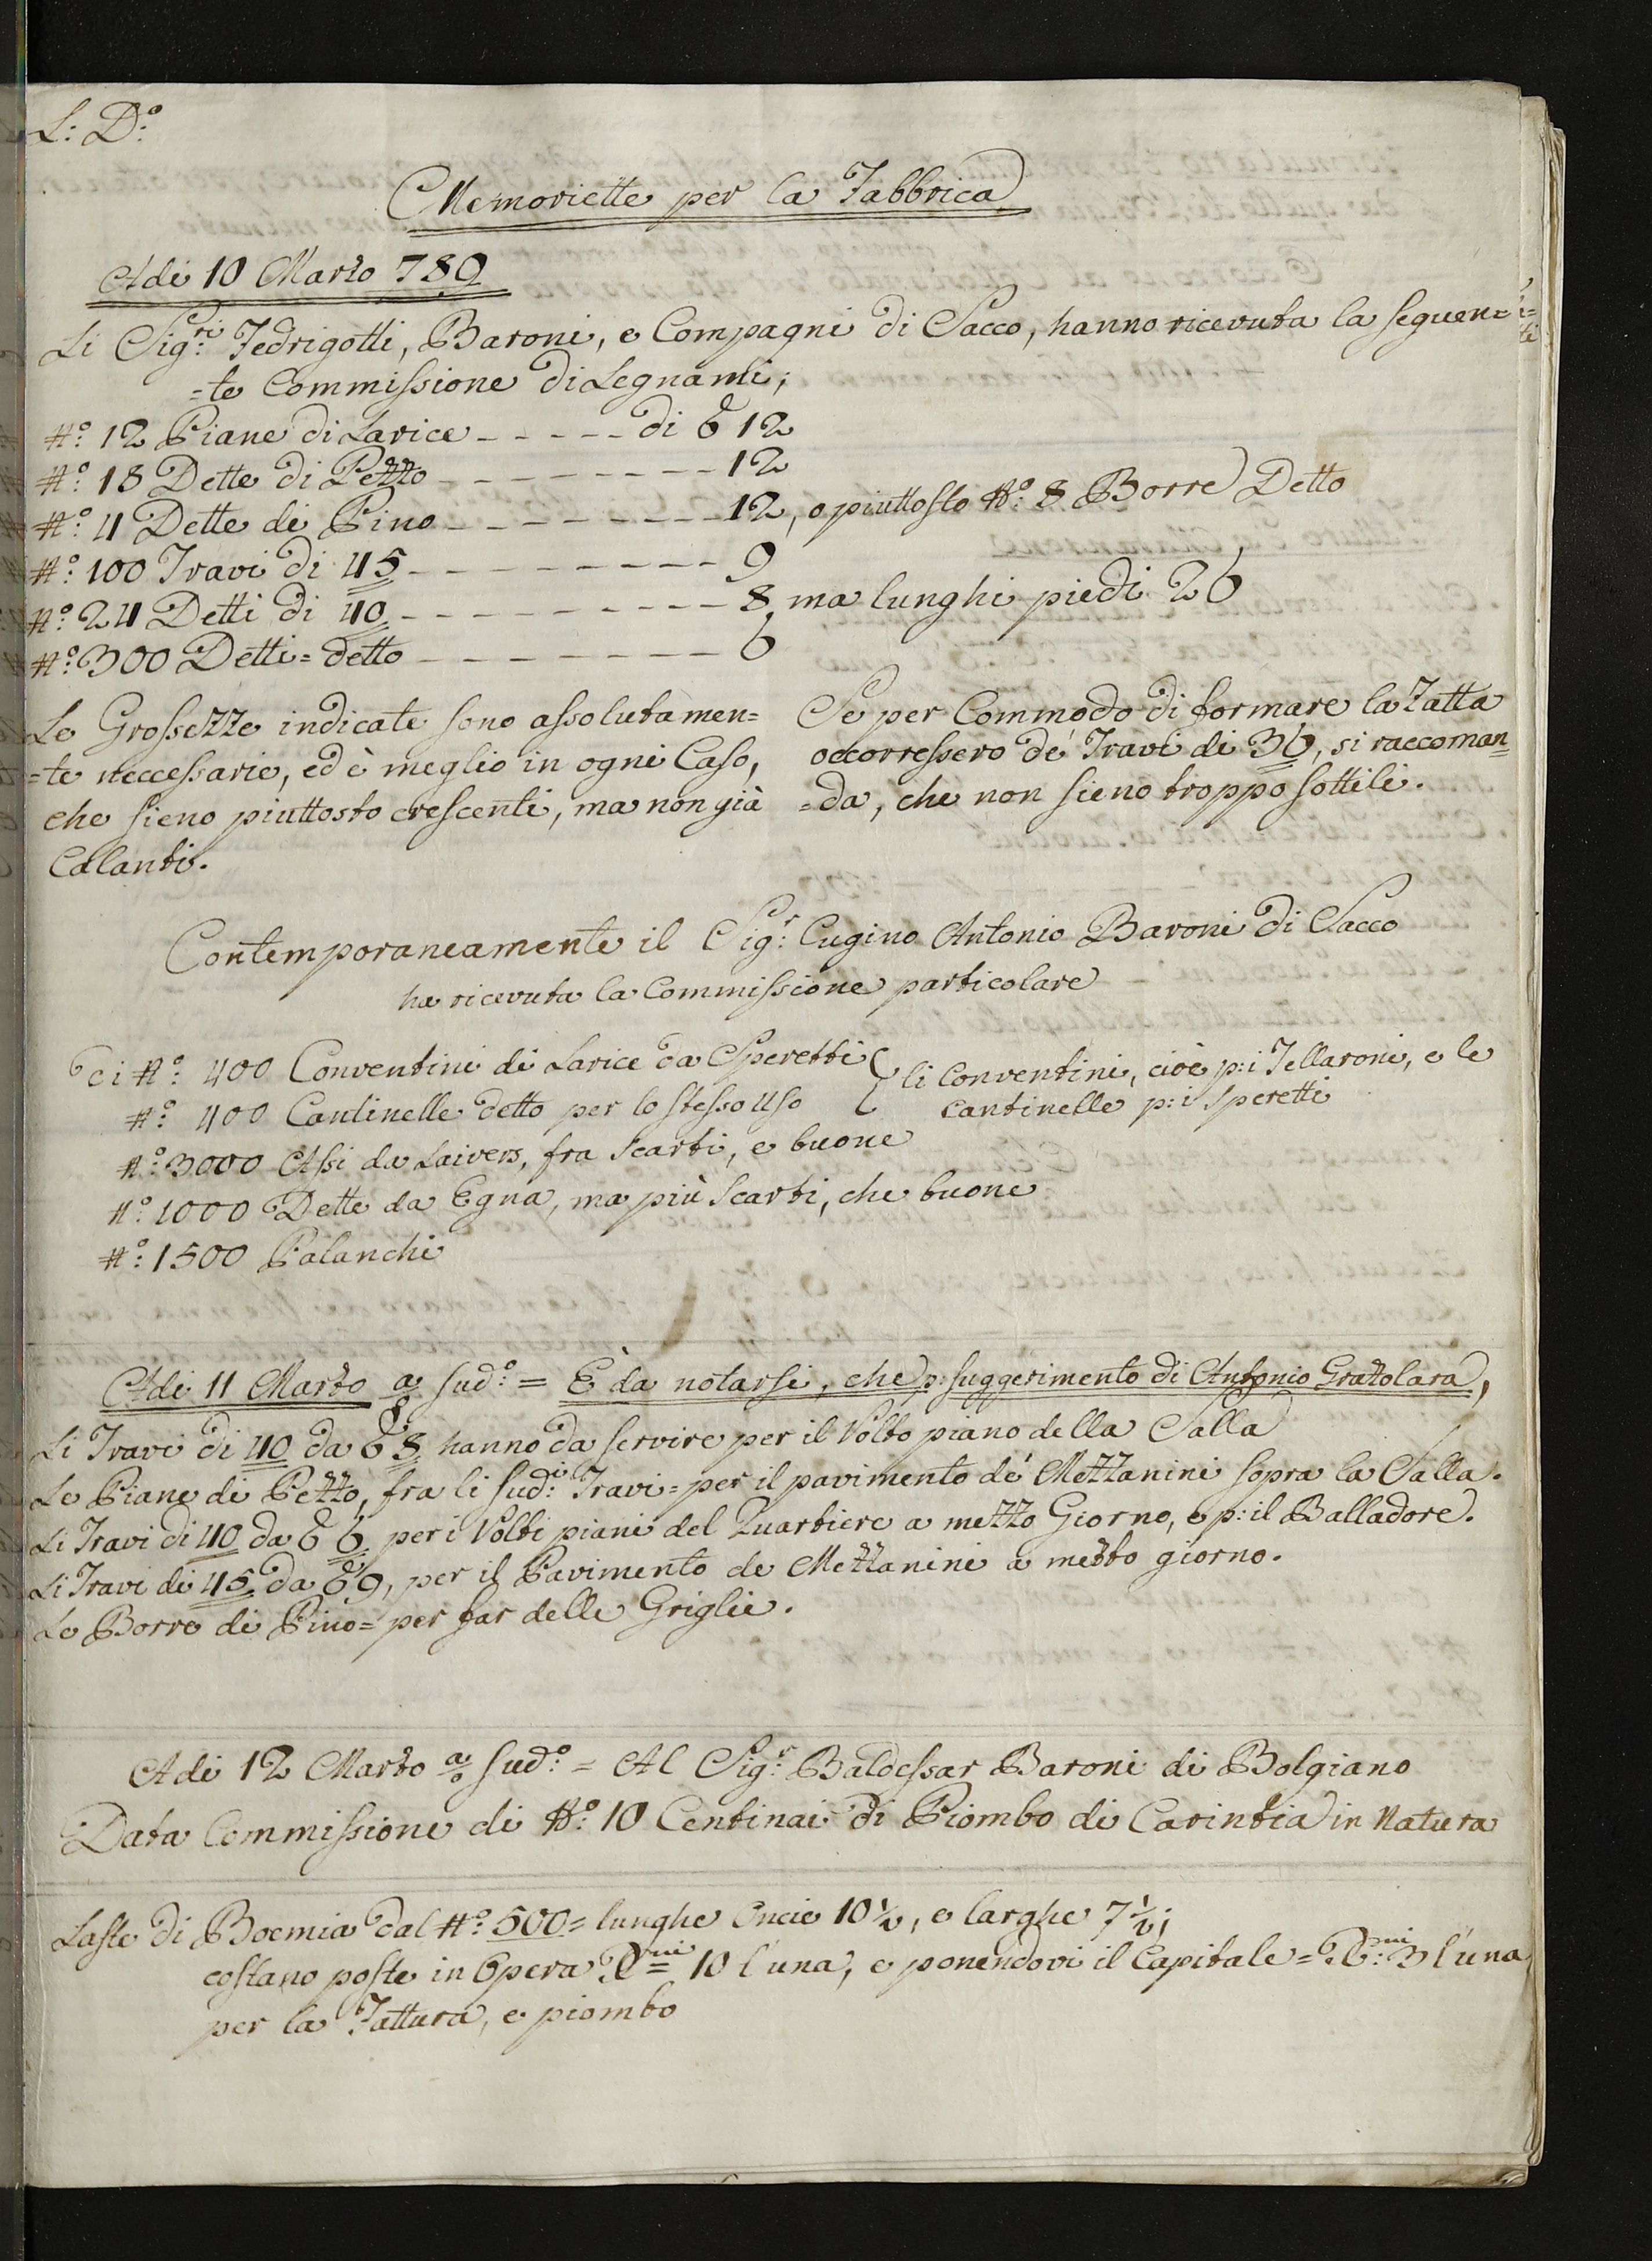 L: D:º
Memoriette per la Fabbrica
Adi 10 Marzo 789
Li Sig:ri Fedrigotti, Baroni, e Compagni di Sacco, hanno ricevuta la seguen=
=te Commissione di Legnami;
N:º 12 Piane di Larice - - - - - di 6 12
N:º 18 Dette di Pezzo - - - - - - - - 12
N:º 4 Dette di Pino - - - - - - - - 12, o piuttosto N:º 8 Borre Detto
N:º 100 Travi di 45 - - - - - - - - - 9
N:º 24 Detti di 40 - - - - - - - - - 8, ma lunghi piedi 26
N:º 300 Detti = detto - - - - - - - - 6
Le Grossezze indicate sono assolutamen=
=te neccessarie, ed è meglio in ogni Caso,
che sieno piuttosto crescenti, ma non già
Calanti.
Se per Commodo di formare la Zatta
occorressero de' Travi di 36, si raccoman=
=da, che non sieno troppo sottili.
Contemporaneamente il Sig:r Cugino Antonio Baroni di Sacco
ha ricevuta la Commissione particolare
Di N:º 400 Conventini di Larice da Speretti
N:º 400 Cantinelle detto per lo stesso uso
li Conventini, cioè p:i Tellaroni, e le
cantinelle p:i Speretti
N:º 3000 Assi da Laivers, fra Scarti, e buone
N:º 1000 Dette da Egna, ma più Scarti, che buone
N:º 1500 Palanchi
Adi 11 Marzo aº sud:º = E' da notarsi, che p: suggerimento di Antonio Grattolara,
Li Travi di 40 da 6 8 hanno da servire per il Volto piano della Salla
Le Piane di Pezzo, fra li sud:i Travi = per il pavimento de' Mezzanini sopra la Salla.
Li Travi di 40 da 6 6 per i Volti piani del Quartiere a mezzo Giorno, e p: il Balladore.
Li Travi di 45 da 6 9, per il Pavimento de Mezzanini a mezzo giorno.
Le Borre di Pino = per far delle Griglie.
Adi 12 Marzo aº sud:º = Al Sig:r Baldessar Baroni di Bolgiano
Data Commissione di N:º 10 Centinai di Piombo di Carintia in Natura
Laste di Boemia dal N:º 500 = lunghe Oncie 10½, e larghe 7½;
costano poste in Opera 10 l'una, e ponendovi il Capitale = 3 l'una
per la Fattura, e piombo